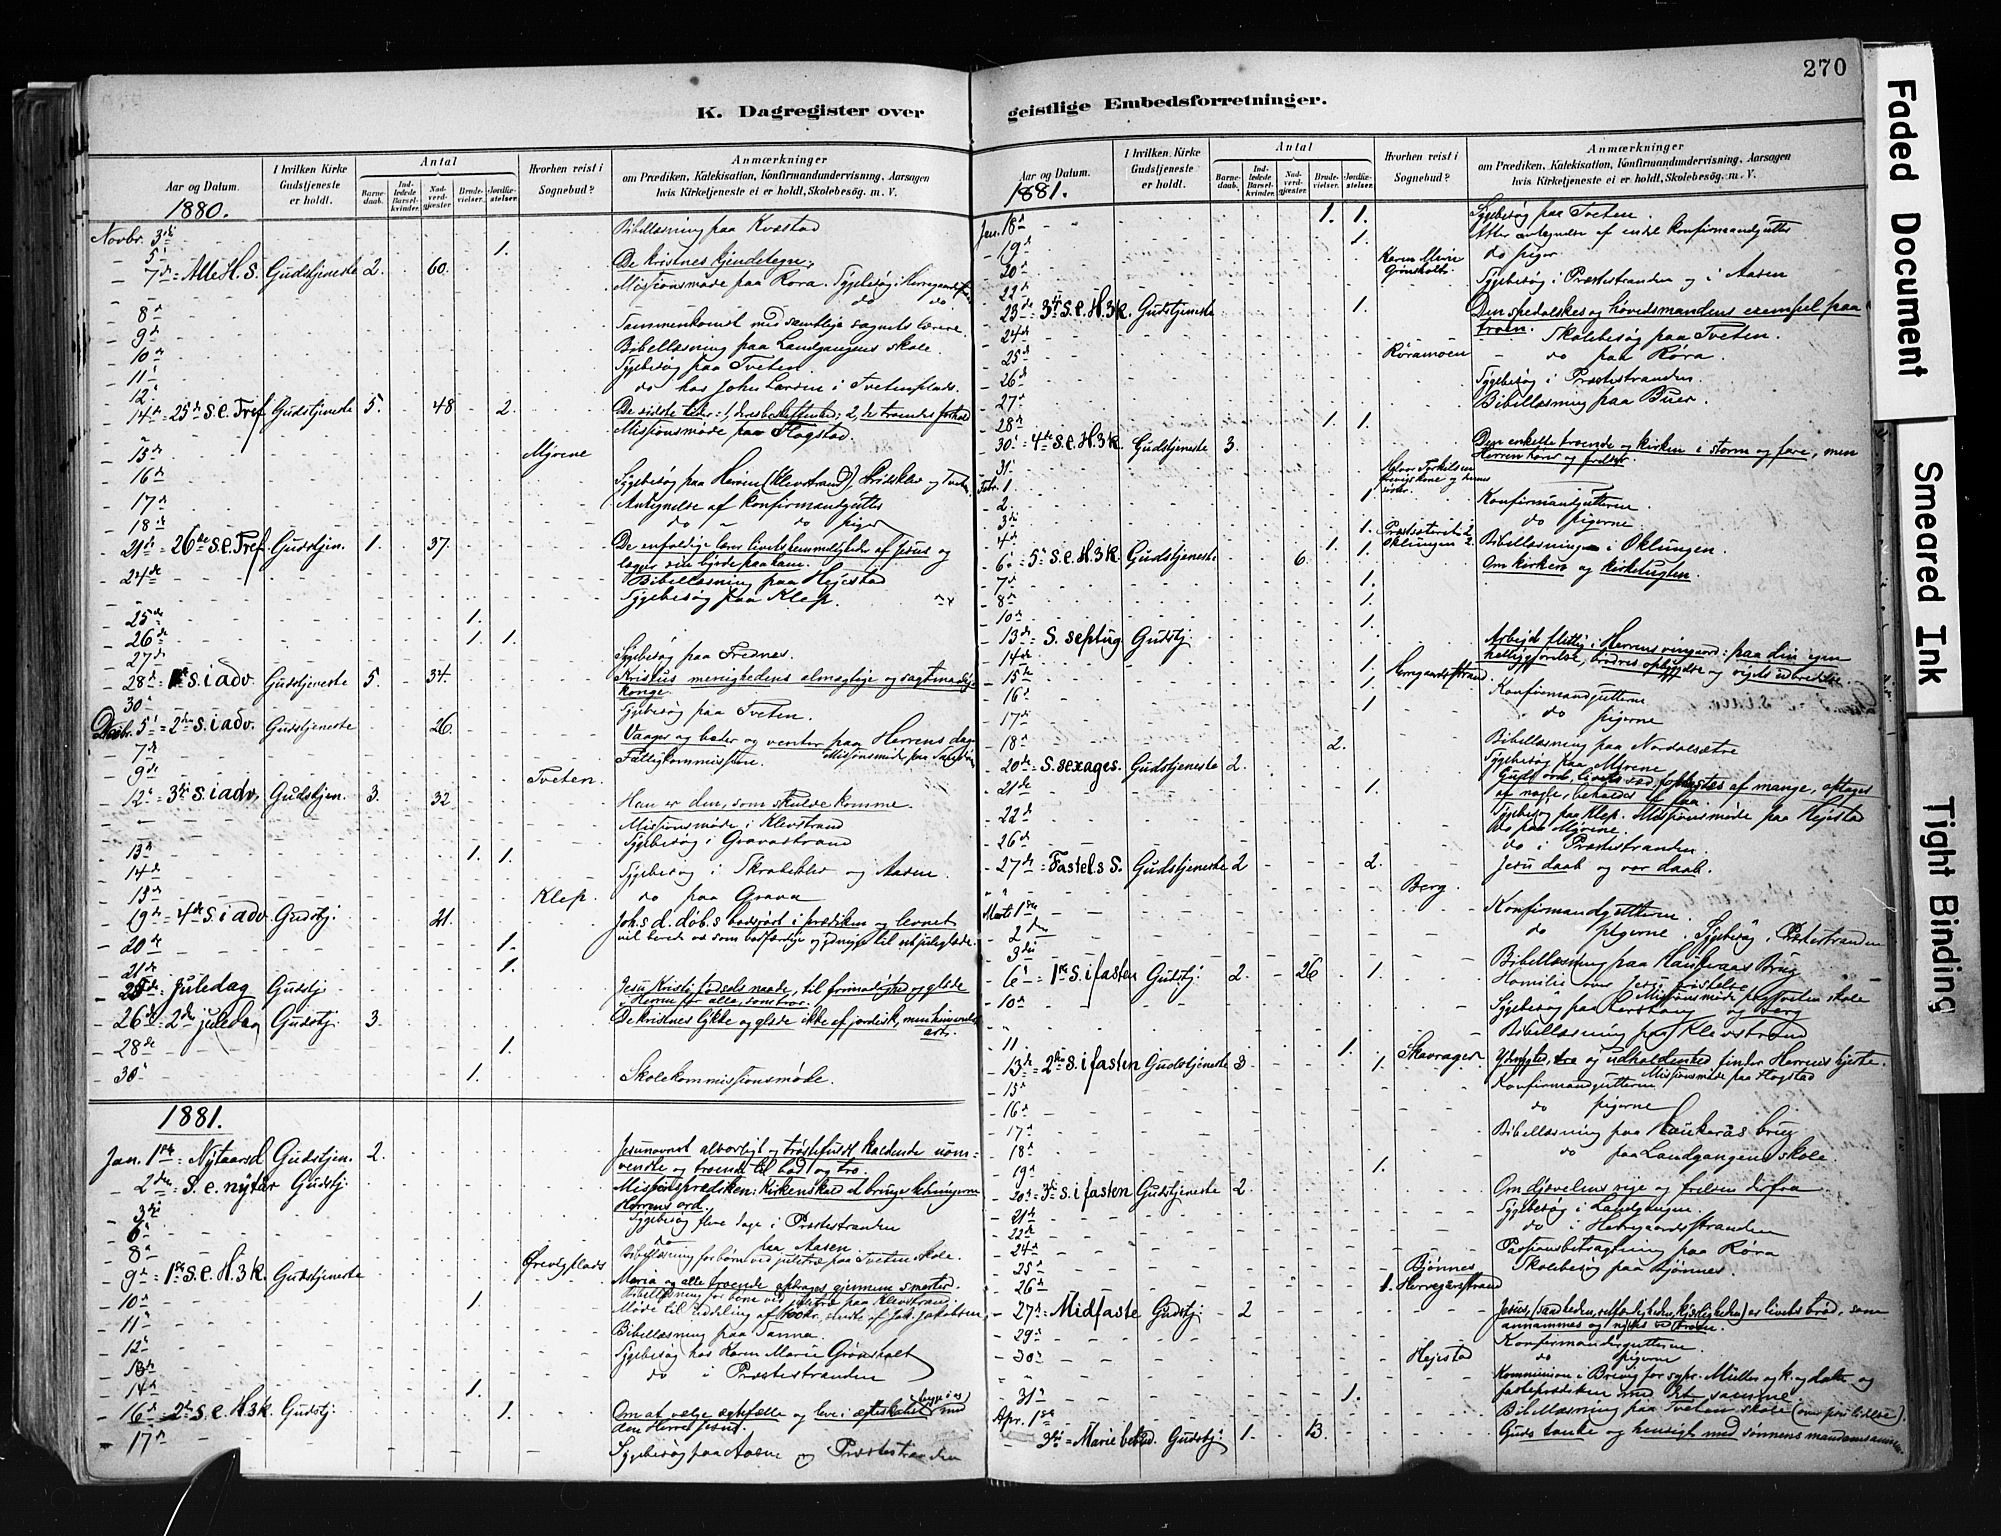 270
K. Dagregister over
geistlige Embedsforretninger.
Faded Document
Smeared Ink
Tight Binding
Aar og Datum.
I hvilken Kirke Gudstjeneste er holdt.
Antal
Barnedaab.
Indledede Barselkvinder.
Nadverdgjester
Brudevielser.
Jordfæstelser.
Hvorhen reist i Sognebud?
Anmærkninger
om Prædiken, Katekisation, Konfirmandundervisning, Aarsagen
hvis Kirketjeneste ei er holdt, Skolebesøg. m. V.
1880.
Novbr. 3die Bibellæsning paa Kvæstad
- 5te 1.
- 7de = Alle H. S. Gudstjeneste 2. 60. De kristnes kjendetegn.
Missionsmøde paa Røra. Sygebesøg i Herregaardsstranden
- 8de do do
- 9de Sammenkomst med samtlige sognets lærere
- 10de Bibellæsning paa Landgangens skole.
- 11te Sygebesøg paa Tveten
- 12te do hos John Larsen i Tvetenplads.
- 14de = 25de S. e. Tref. Gudstjeneste 5. 48 2.
Missionsmøde paa Flogstad
- 15de Myrene
- 16de
- 17de Antegnelse af konfirmandgutter
- 18de do do piger
- 21de = 26de S. e. Tref. Gudstjen. 1. 37. De enfoldige lærer livets hemmeligheder af Jesus og
lægger sin byrde paa ham.
- 24de Bibellæsning paa Hejestad
Sygebesøg paa Klep.
- 25de 1.
- 26de 1. 1.
- 27de Sygebesøg paa Frednes.
- 28de 1ste S. i adv. Gudstjeneste 5 34. Kristus menighedens almægtige og sagtmodige
konge.
- 30te Sygebesøg paa Tveten.
Decbr. 5te = 2den S. i adv. Gudstjeneste 26. Vaager og beder og venter paa Herrens dag
- 7de Fattigkommission. Missionsmøde paa
- 9de Tveten.
- 12te = 3die S. i adv. Gudstjen. 3. 32 Han er den, som skulde komme.
Missionsmøde i Klevstrand
Sygebesøg i Gravastrand
- 13de 1. 1.
- 14de Sygebesøg i Skrabeklev og Aasen.
- 15de Klep. do paa Grava
- 19de = 4de S. i adv Gudstj. 21. Johs. d. døb.s bodsrøst i prædiken og levnet
vil berede os som bodfærdige og ydmyge til ret juleglæde.
- 20de 1.
- 21de 1.
- 25de = Juledag Gudstj Jesu Kristi fødsels naade, til frimodighed og glæde
i Herren for alle, som tror.
- 26de = 2den juledag Gudstj. 3. De kristnes lykke og glæde ikke af jordisk, men himmelsk
art.
- 28de 1.
- 30te 1. Skolekommissionsmøde.
1881.
Jan. 1ste = Nytaarsd Gudstjen. 2. Jesunavnet alvorligt og trøstefuldt kaldende uom-
vendte og troende til bod og tro.
- 2den = S. e. nytår Gudstj. Missionsprædiken: Kirkens kald at bringe hedningerne
Herrens ord.
- 3die
- 6te Sygebesøg flere dage i Præstestranden
- 8de do paa Aasen
Bibellæsning for børn ved juletræ paa Tveten Skole.
- 9de = 1ste S. e. H. 3 k. Gudstjeneste Ørevigplads Maria og alle troende opdrages gjennem smerter.
- 10de 1. Bibellæsning for børn ved juletræ paa Klevstrand.
- 11te Møde til uddeling af
- 12te Bibellæsning paa Tanna.
- 13de Sygebesøg hos Karen Marie Grønsholt
- 14de 1. do i Præstestranden
- 16de = 2den S. e. H. 3 k. Gudstj. 1. Om at vælge ægtefælle og leve i ægteskabet med
den Herre Jesus.
- 17de Sygebesøg paa Aasen og Præstestranden
Aar og Datum.
I hvilken Kirke Gudstjeneste er holdt.
Antal
Barnedaab.
Indledede Barselkvinder.
Nadverdgjester.
Brudevielser.
Jordfæstelser.
Hvorhen reist i Sognebud?
Anmærkninger
om Prædiken, Katekisation, Konfirmandundervisning, Aarsagen
hvis Kirketjeneste ei er holdt, Skolebesøg, m. V.
1881.
Jan. 18de 1. 1. Sygebesøg paa Tveten.
- 19de 1. Atter antegnelse af endel konfirmandgutter
- 20de Karen Marie Grønsholts do piger
- 22de Sygebesøg i Præstestranden og i Aasen
- 23de = 3die S. e. H. 3 k. Gudstjeneste 1. Den spedalskes og høvedsmandens exempel paa
troen.
- 24de Skolebesøg paa Tveten.
- 25de Røramoen do paa Røra.
- 26de Sygebesøg i Præstestranden.
- 27de Bibellæsning paa Buer
- 28de 1. 1.
- 30te = 4de S. e. H. 3 k Gudstjeneste 3. Den enkelte troende og kirken i storm og fare, men
Herren hører og frelser.
- 31.
Febr. 1
- 2. 1 Konfirmandgutterne
- 3die do pigerne
- 4de 1. Oklungen 2. Bibellæsning i Oklungen.
- 6te = 5te S. e. H. 3 k Gudstjeneste 6. 1. 1. Om kirken og kirketugten.
- 7de 1.
- 8de 1.
- 10de 1.
- 13de = S. septuag Gudstj Arbejd flittig i Herrens vingaard: paa din egen
helliggjørelse, brødres opbyggelse og rigets udbredelse
- 14de
- 15de 1. Herregaardsstrand
- 16de 1. Konfirmandgutterne
- 17de 1 do pigerne
- 18de 2. Bibellæsning paa Nordalsætre
- 20de = S. sexages. Gudstjeneste 2. Sygebesøg paa Myrene
- 21de 1. af nogle, beholdes af faa.
- 22de Sygebesøg paa Klep. Missionsmøde paa Hejestad
do paa Myrene.
- 26de do i Præstestranden.
- 27de = Fastel.s S. Gudstjeneste 2 2. Jesu daab og vor daab.
Berg.
Marts 1ste Konfirmandgutterne.
- 2den do pigerne. Sygebesøg i Præstestranden
- 3die Bibellæsning paa Haukeraas Brug
- 6te = 1ste S. i fasten Gudstj. 2. 26 1. Homilie over Jesu fristelse
Missionsmøde paa Tveten skole
- 10de Sygebesøg paa og Berg
- 11. 1. Bibellæsning paa Klevstrand
- 13de = 2den S. i fasten Gudstjeneste 3 1. Skavrager Ydmyghed, tro og udholdenhed finder Herrens hjælp.
Missionsmøde paa Flogstad
- 15de Konfirmandgutterne
- 16de do pigerne
- 17de Bibellæsning paa Haukerås brug
- 18de do paa Landgangens skole.
- 19de 1.
- 20de = 3die S. i fasten Gudstjeneste 2. Om djævelens rige og frelsen derfra
- 21de Sygebesøg i Landgangen.
- 22de do i Herregaardsstranden
- 24de Passionsbetragtning paa Røra
- 25de Bjønnes Skolebesøg paa Bjønnes.
- 26de 1 Herregårdsstrand
- 27de = Midfaste Gudstj 2 Jesus, (sandheden, retfærdigheden, kjærligheden) er livets brød, som
annammes og nydes ved troen.
- 29de Konfirmandgutterne
- 30te Hejestad do pigerne
Kommunion i Brevig for sgpr. Müller og k. og datter og
- 31te 1. fasteprædiken med det samme
Apr. 1ste Bibellæsning paa Tveten skole
- 3die = Marie bebud. Gudstj 1. 13. Guds tanke og hensigt med sønnens